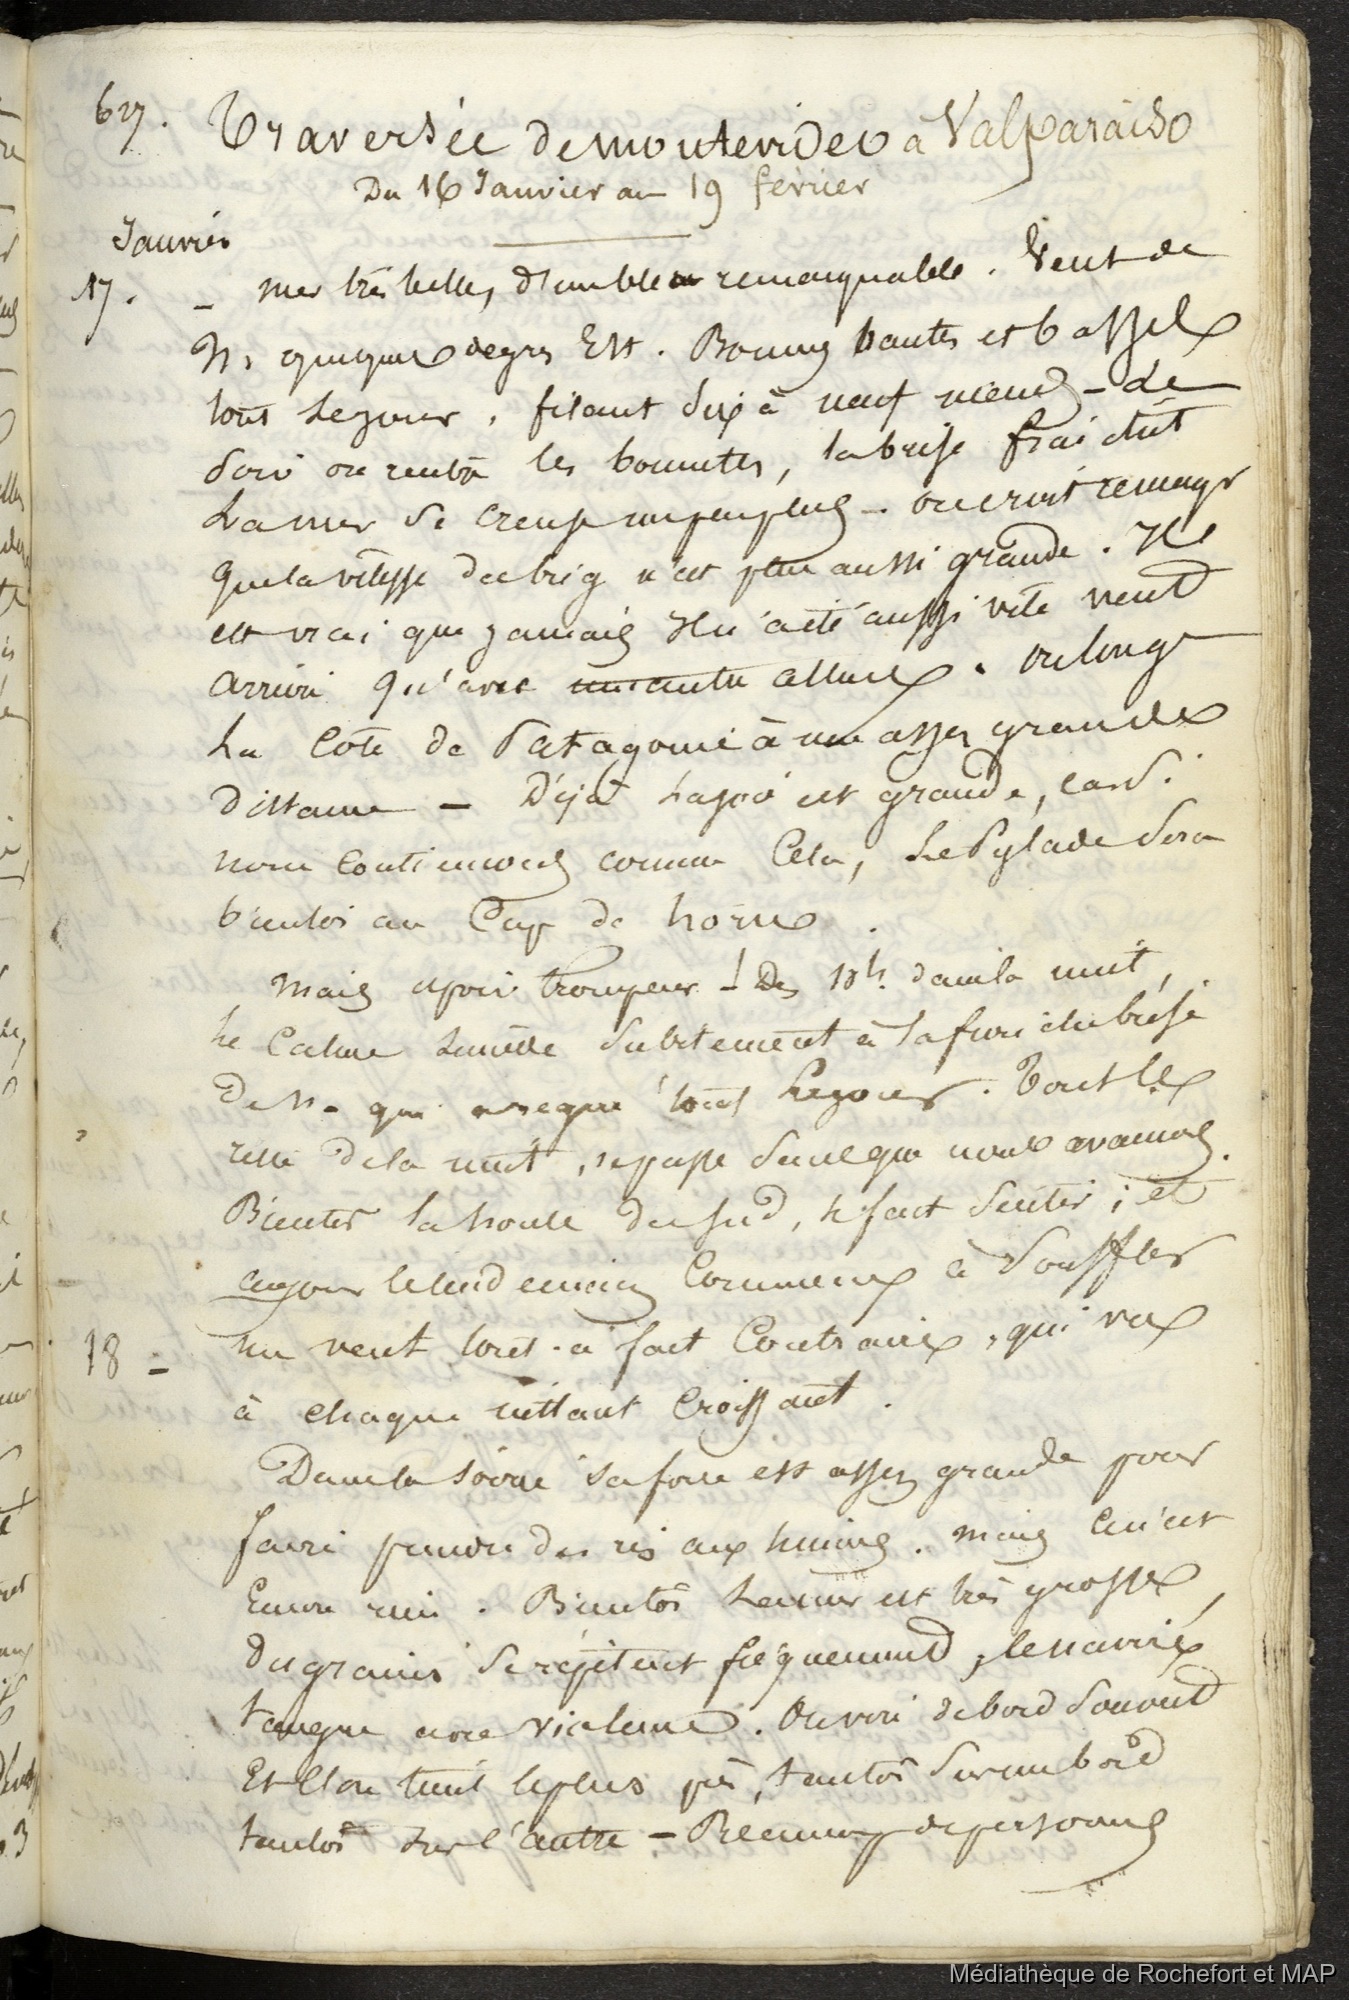 627.
Traversée de montevideo à Valparaiso
Du 16 Janvier au 19 février
Janvier
17. – mer très belle, d'emblée remarquable. Vent de
N. quelques degrés Est. Bonnes hautes et basses
tout le jour, filant dix à neuf nœuds – Le
soir on rentre les bonnettes, la brise fraichit
La mer se creuse un peu plus – on croit remarqr
que la vitesse du brig n'est plus aussi grande. Il
est vrai que jamais il n'a été aussi vite vent
arrière qu'avec une autre allure. on longe
La Côte de Patagonie à une assez grande
distance – Déjà La joie est grande, car si
nous Continuons comme Cela, Le Pylade sera
bientôt au Cap de horn.
Mais espoir trompeur ! Dès 10h. dans la nuit,
Le Calme succède subitement à la furie du brise
De N. qui a régné tout Le jour. Tout le
reste de la nuit, se passe sans que nous avancions.
Bientôt la houle du sud, se fait sentir ; et
au jour le lendemain Commence à Souffler
18 – un vent tout-à-fait Contraire, qui va
à chaque instant Croissant.
Dans la soirée sa force est assez grande pour
faire prendre des ris aux huniers. Mais Ce n'est
Encore rien. Bientôt La mer est très grosse,
Des grains se répètent fréquemment, le navire
tangue avec violence. On vire de bord Souvent
Et l'on tient le plus près, tantôt sur un bord
tantôt sur l'autre – de personnes
Médiathèque de Rochefort et MAP